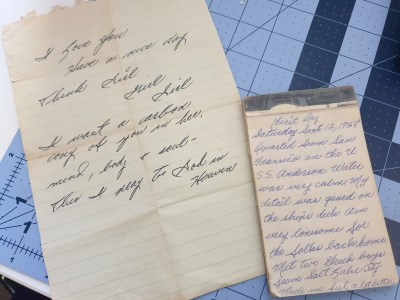 I love you
Have a nice day
Think Girl
Girl
Girl
I want a carbon
copy of you in her.
mind, body & soul-
This I pray to God in
Heaven
First Day
Saturday Sept 13, 1958
Departed from San
Francisco on the U
S S Anderson Water
was very calm. My
detail was guard on
the ships deck. Am
very lonesome for
the folks back home
Met two Greek boys
from Salt Lake City
Made me feel a lot better